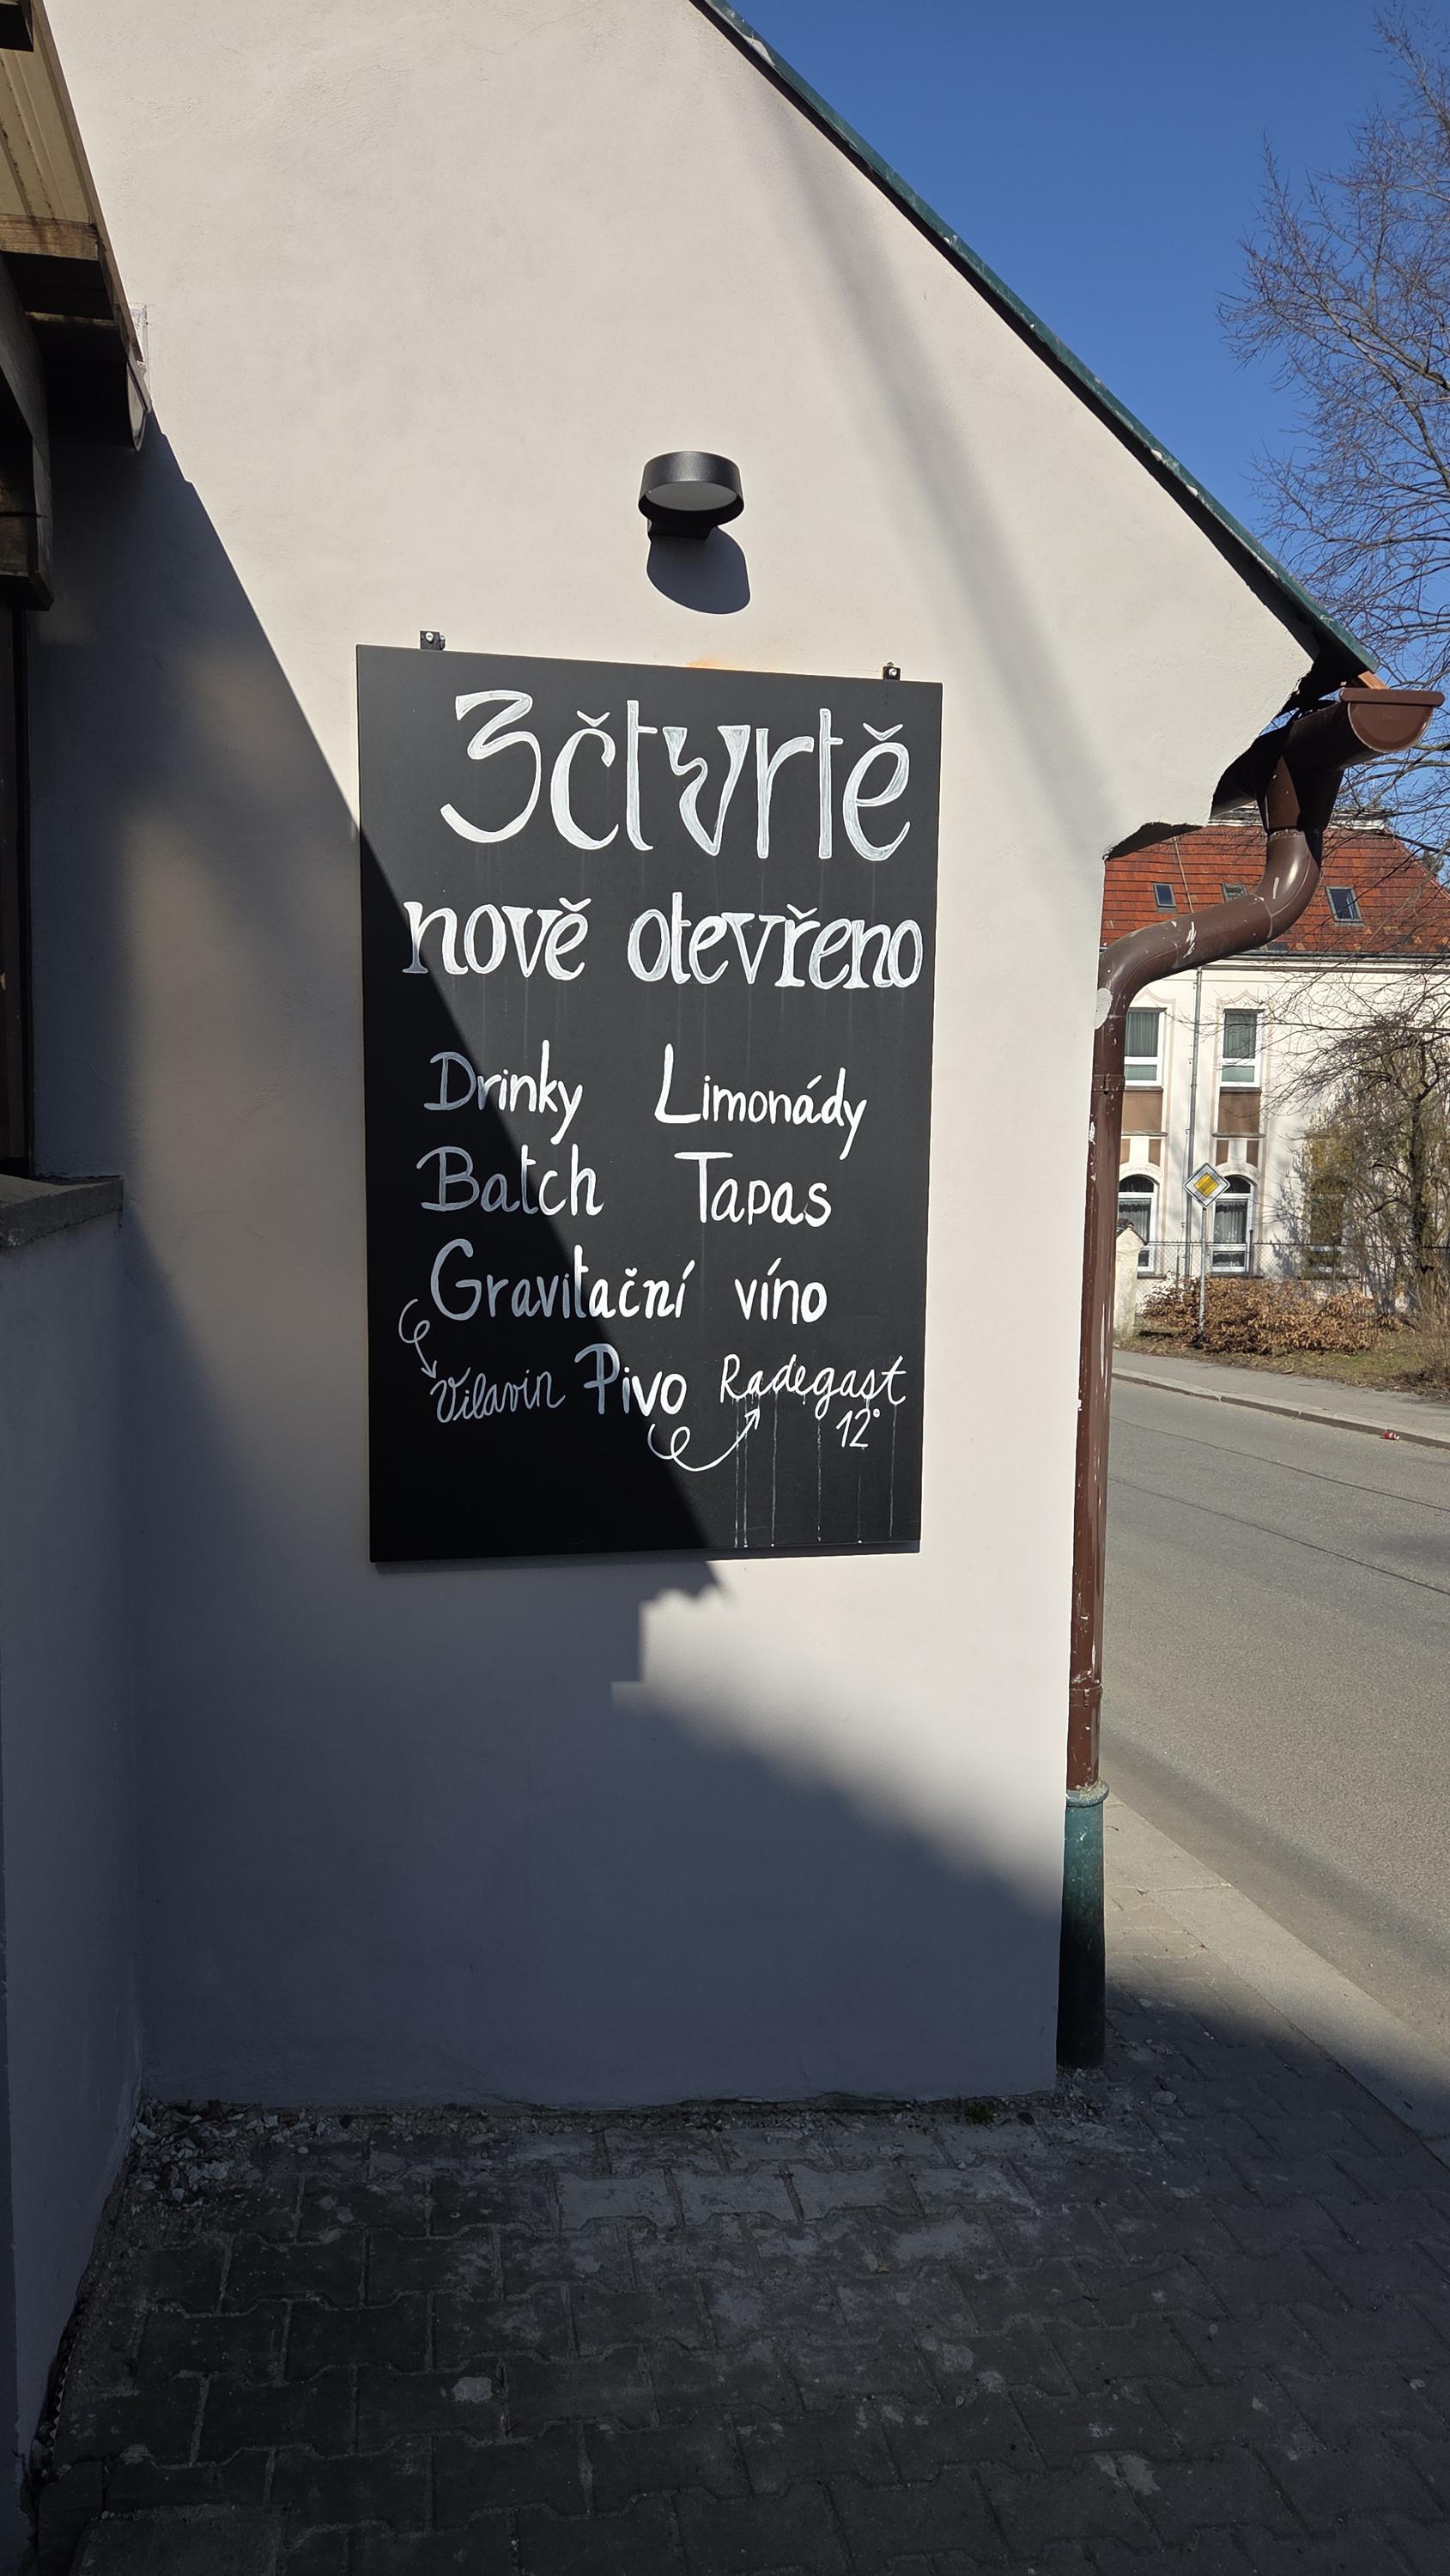 3čtvrtě
nově otevřeno
Drinky Limonády
Batch Tapas
Gravitační víno
Vilavin Pivo Radegast
12°